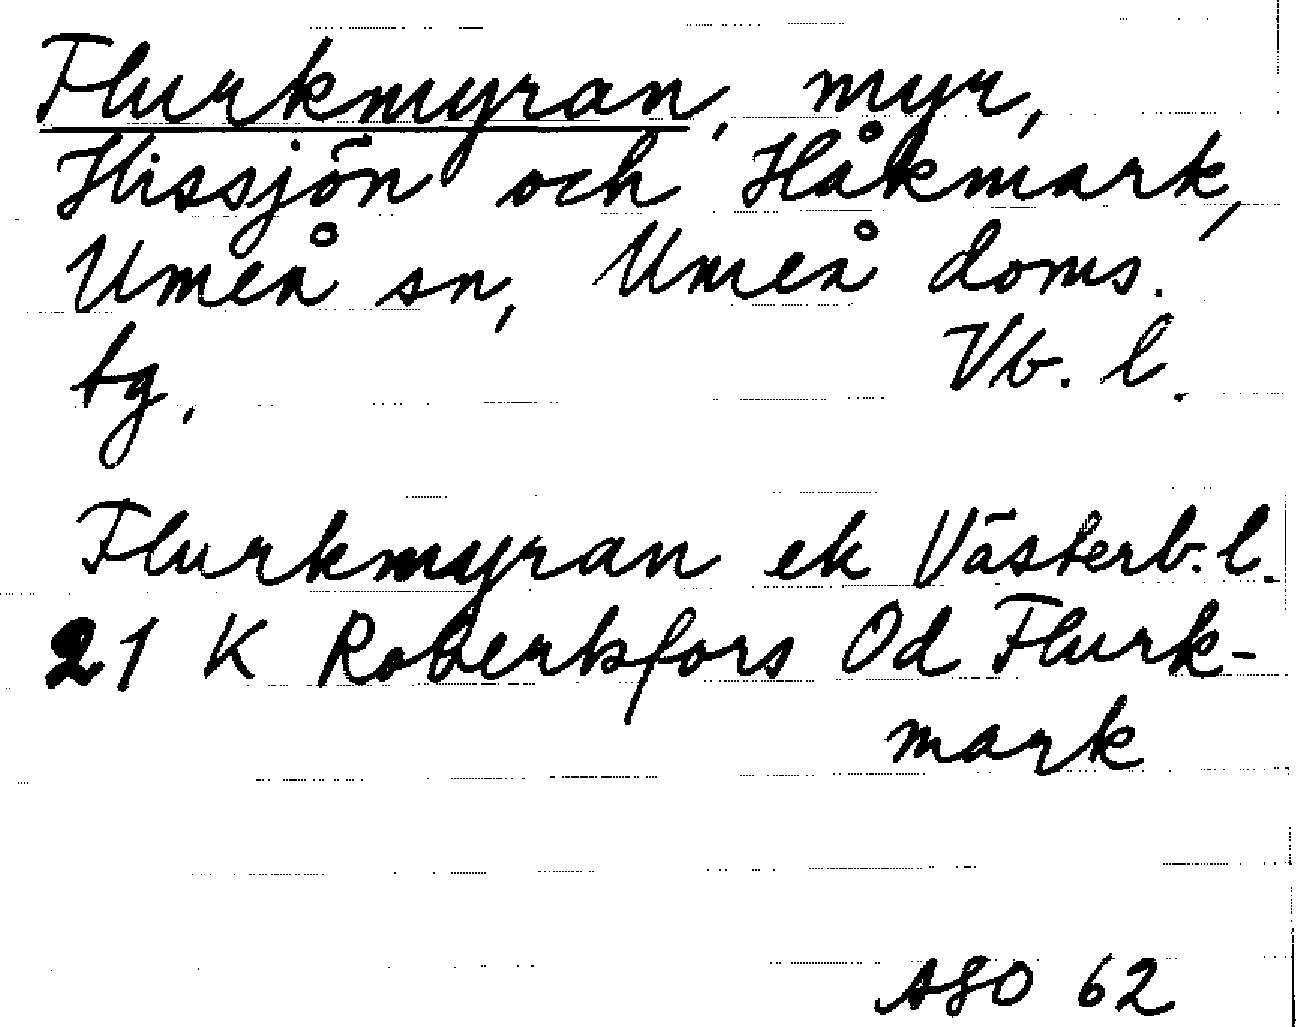 Flurkmyran, myr,
Hissjön och Håkmark,
Umeå sn, Umeå doms.
tg. Vb. l.
Flurkmyran ek Västerb. l.
21 K Robertsfors Od Flurk-
mark
ASO 62